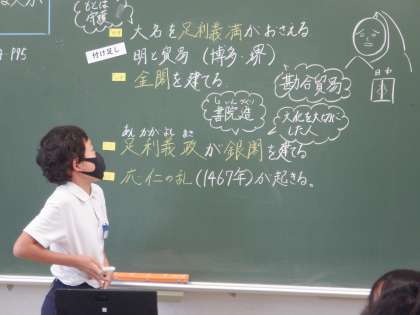 もとは
守護
大名を足利義満がおさえる
付け足し
明と貿易(博多・堺)
勘合貿易
金閣を建てる
しょいんづくり
書院造
文化を大切に
した人
足利義政が銀閣を建てる
応仁の乱(1467年)が起きる。